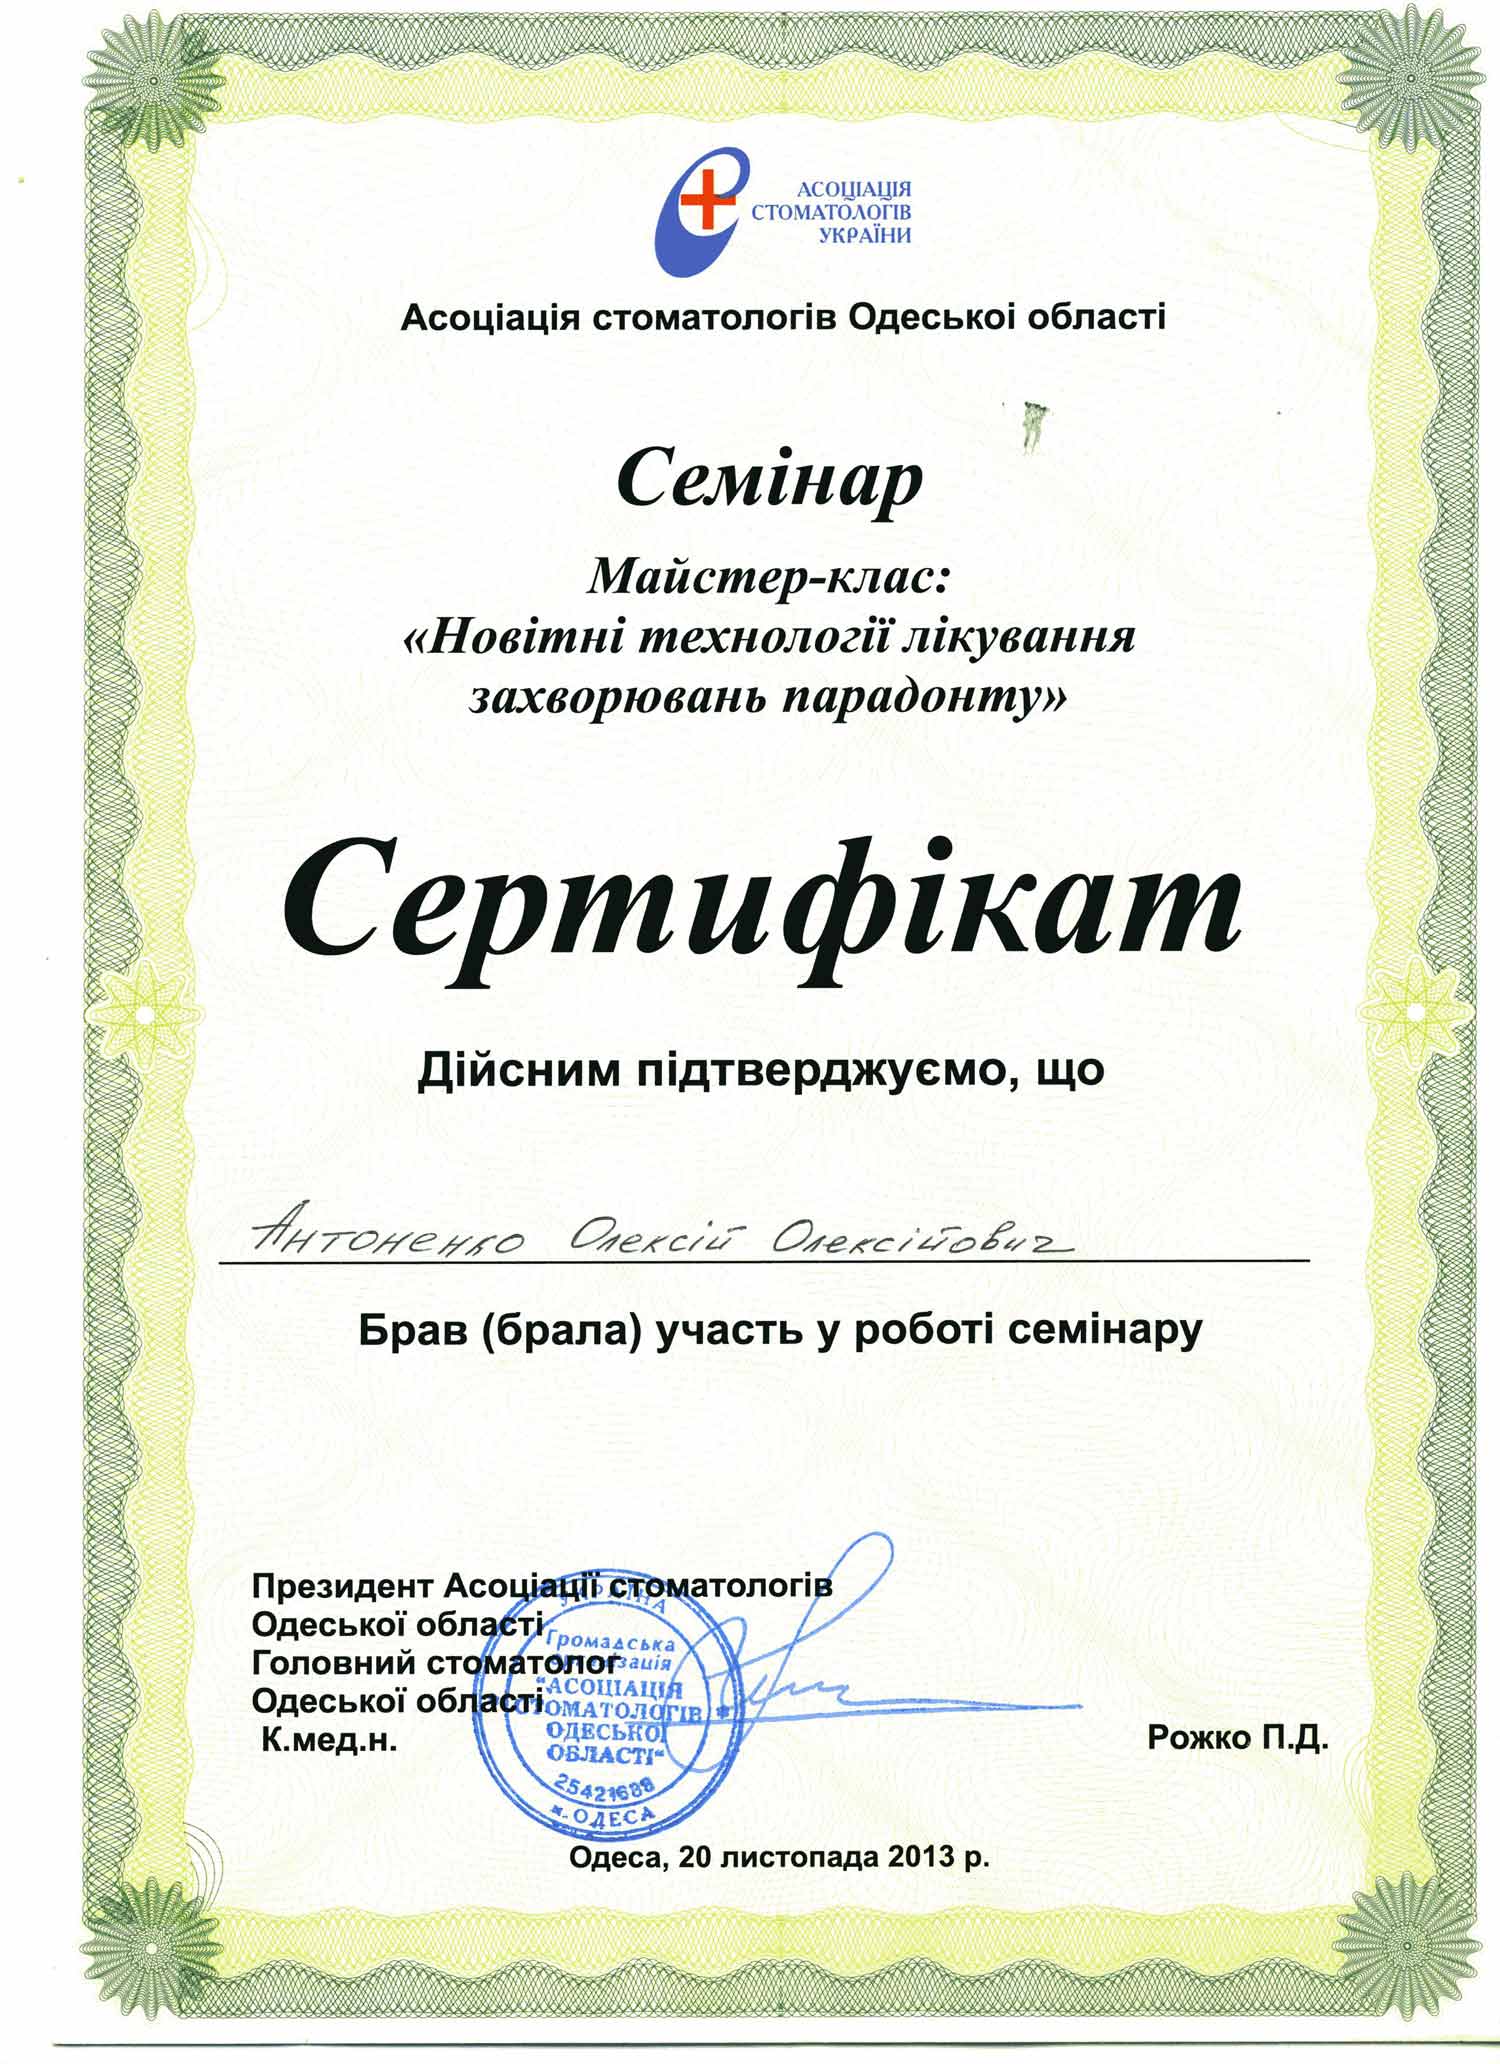 АСОЦІАЦІЯ
СТОМАТОЛОГІВ
УКРАЇНИ
Асоціація стоматологів Одеськоі області
Семінар
Майстер-клас:
«Новітні технології лікування
захворювань парадонту»
Сертифікат
Дійсним підтверджуємо, що
Антоненко Олексій Олексійович
Брав (брала) участь у роботі семінару
Президент Асоціації стоматологів
Одеської області
Головний стоматолог
Одеської області
К.мед.н.
Рожко П.Д.
УКРАЇНА
Громадська
організація
"АСОЦІАЦІЯ
СТОМАТОЛОГІВ
ОДЕСЬКОЇ
ОБЛАСТІ"
м. ОДЕСА
Одеса, 20 листопада 2013 р.